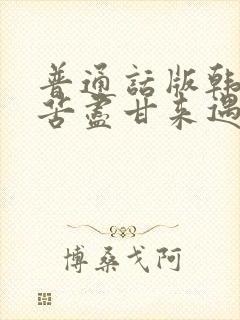 普通話版韩
苦盡甘来遇
博桑戈阿